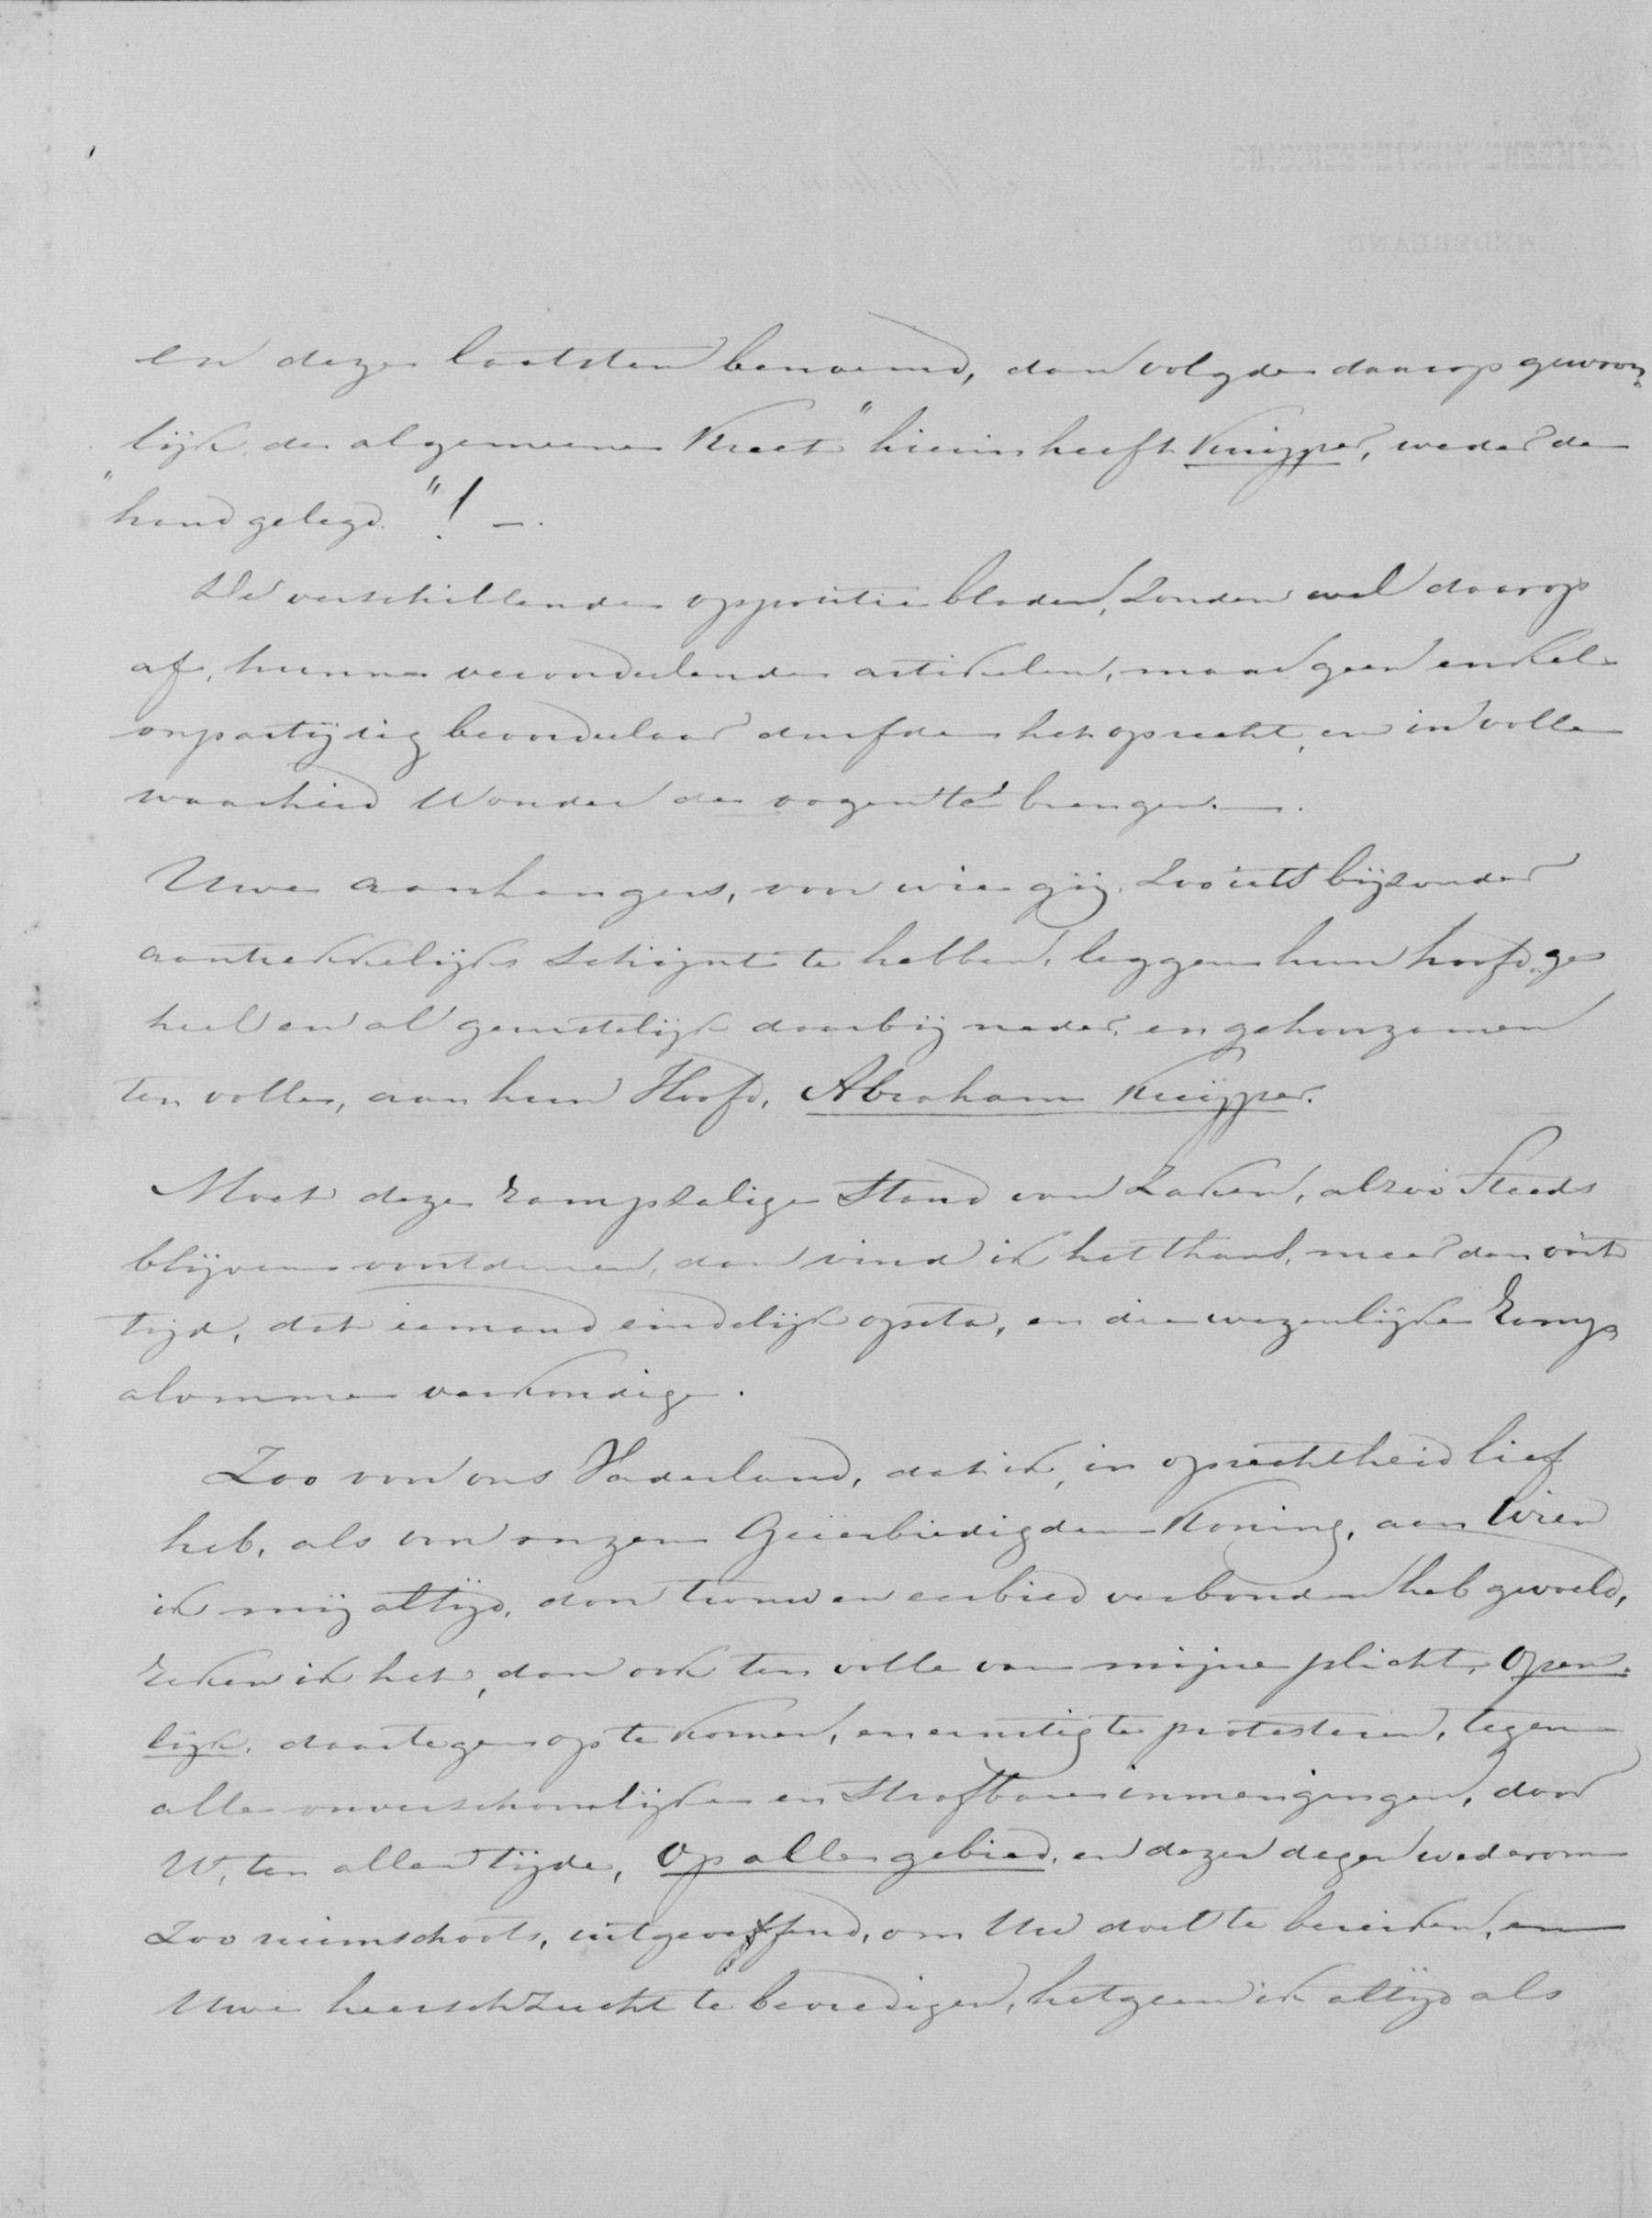 en deze laatsten benoemd, dan volgde daarop gewoon=
lijk, de algemeene Kreet "hierin heeft Kuijper, weder de
"hand gelegd."! —.
De verschillende oppositie bladen, zonden wel daarop
af, hunne veroordeelende artikelen, maar geen enkel
onpartijdig beoordeelaar durfde het oprecht, en in volle
waarheid U onder de oogen te brengen. —.
Uwe aanhangers, voor wie gij, zoo iets bijzonder
aantrekkelijks schijnt te hebben, leggen hun hoofd ge
heel en al gerustelijk daarbij neder, en gehoorzamen
ten volle, aan hun Hoofd, Abraham Kuijper.
Moet deze rampzalige stand van zaken, alzoo steeds
blijven voortduren, dan vind ik het thans, meer dan oóit
tijd, dat iemand eindelijk opsta, en die wezenlijke ramp
alomme verkondige.
Zoo voor ons Vaderland, dat ik, in oprechtheid lief
heb, als van onzen Geëerbiedigden Koning, aan Wien
ik mij altijd, door trouw en eerbied verbonden heb gevoeld,
reken ik het, dan ook ten volle van mijne plicht, Open=
lijk, daartegen op te komen, en ernstig te protesteren, tegen
alle onverschoonlijke en Strafbare inmengingen, door
U, ten allen tijde, Op alle gebied, en dezer dagen wederom
zoo ruimschoots, uitgeoeffend, om Uw doel te bereiken, en
Uwe heerschzucht te bevredigen, hetgeen ik altijd als